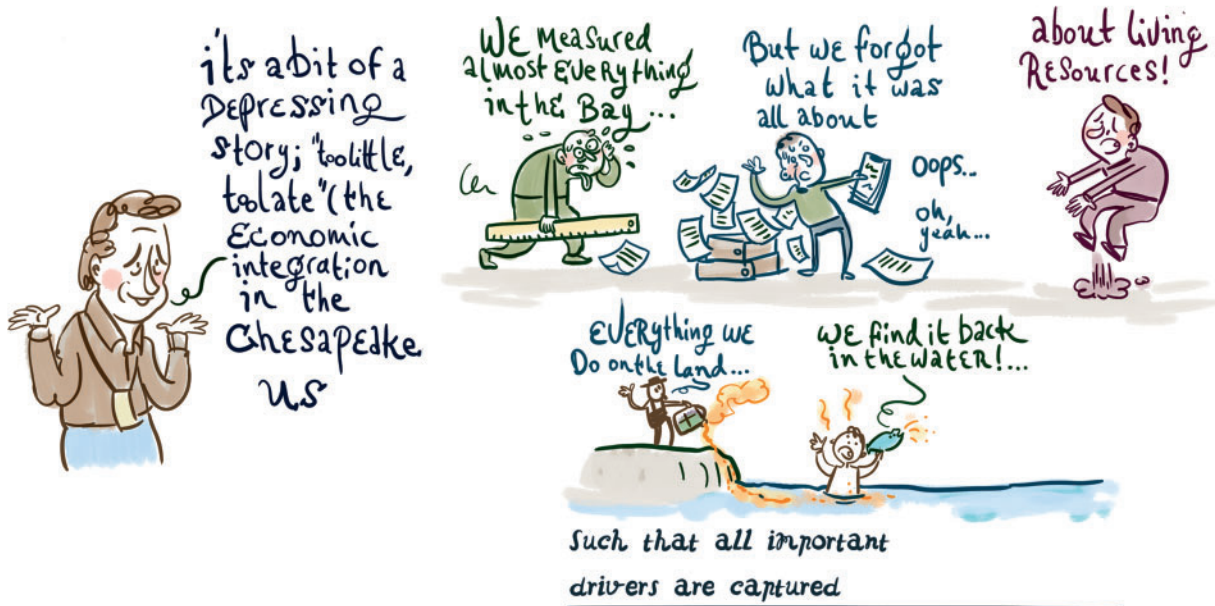 it's a bit of a
Depressing
story; "toolittle,
tolate" (the
Economic
integration
in the
Chesapeake
US
WE Measured
almost EVERything
in the Bay ...
But we forgot
what it was
all about
OOPS...
oh,
yeah...
about living
RESources!
EVERything we
Do on the land...
WE find it back
in the WATER!...
Such that all important
drivers are captured